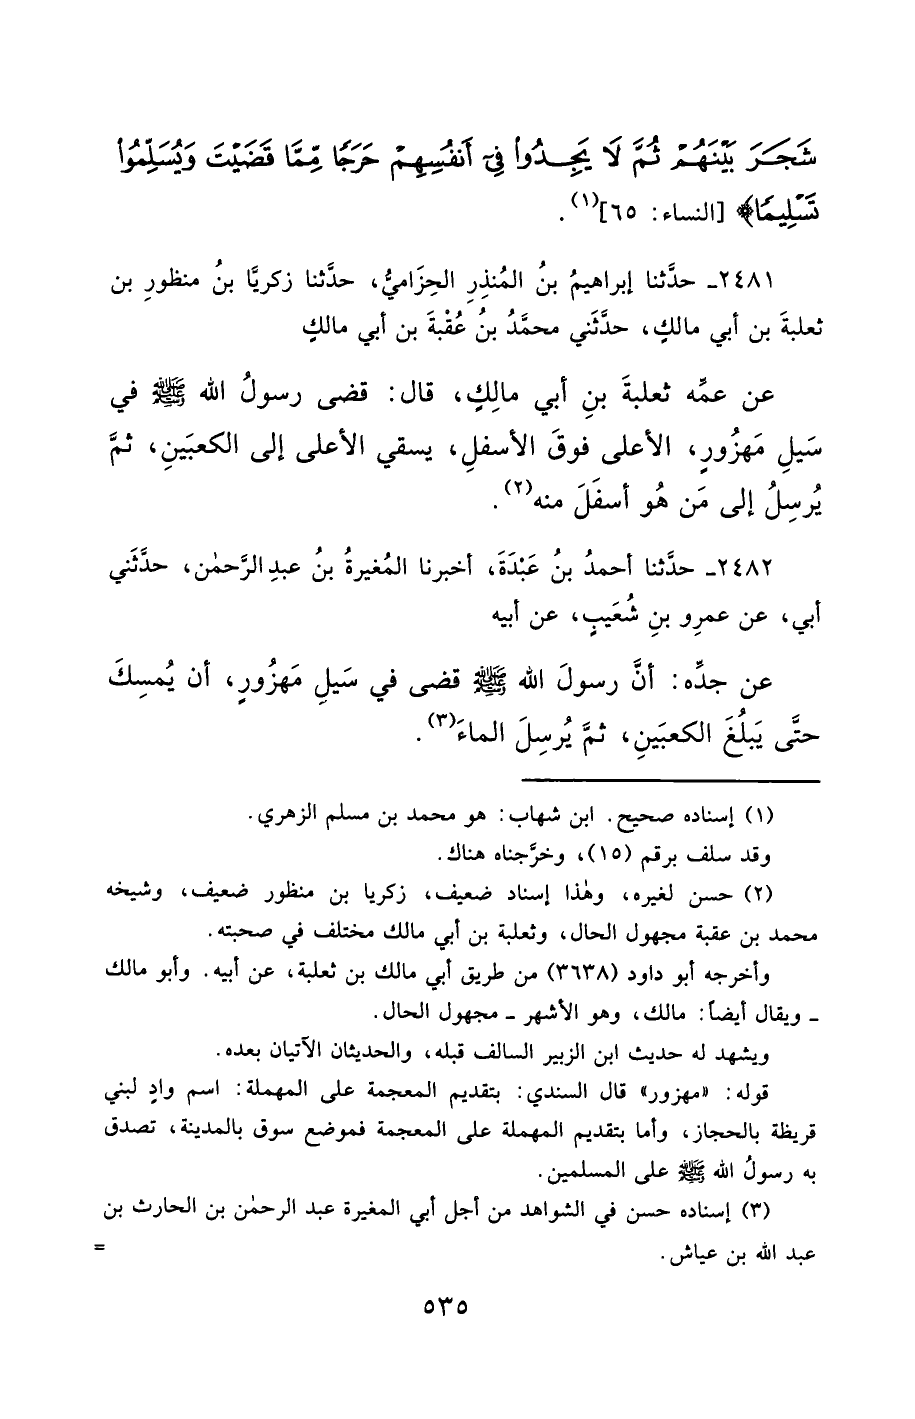 شَجَرَ بَيْنَهُمْ ثُمَّ لَا يَجِدُوا فِي أَنفُسِهِمْ حَرَجًا مِّمَّا قَضَيْتَ وَيُسَلِّمُوا
تَسْلِيمًا﴾ [النساء: ٦٥]<sup>(١)</sup>.
٢٤٨١ـ حدَّثنا إبراهيمُ بنُ المُنذِرِ الحِزَاميُّ، حدَّثنا زكريَّا بنُ منظورِ بن
ثعلبةَ بن أبي مالكٍ، حدَّثَني محمَّدُ بنُ عُقْبةَ بن أبي مالكٍ
عن عمِّه ثعلبةَ بنِ أبي مالِكٍ، قال: قضى رسولُ الله ﷺ في
سَيلِ مَهزُورٍ، الأعلى فوقَ الأسفلِ، يسقي الأعلى إلى الكعبَينِ، ثمَّ
يُرسِلُ إلى مَن هُو أسفَلَ منه<sup>(٢)</sup>.
٢٤٨٢ـ حدَّثنا أحمدُ بنُ عَبْدَةَ، أخبرنا المُغيرةُ بنُ عبدِ الرَّحمٰن، حدَّثَني
أبي، عن عمرِو بنِ شُعَيبٍ، عن أبيه
عن جدِّه: أنَّ رسولَ الله ﷺ قضى في سَيلِ مَهزُورٍ، أن يُمسِكَ
حتَّى يَبلُغَ الكعبَينِ، ثمَّ يُرسِلَ الماءَ<sup>(٣)</sup>.
(١) إسناده صحيح. ابن شهاب: هو محمد بن مسلم الزهري.
وقد سلف برقم (١٥)، وخرَّجناه هناك.
(٢) حسن لغيره، وهٰذا إسناد ضعيف، زكريا بن منظور ضعيف، وشيخه
محمد بن عقبة مجهول الحال، وثعلبة بن أبي مالك مختلف في صحبته.
وأخرجه أبو داود (٣٦٣٨) من طريق أبي مالك بن ثعلبة، عن أبيه. وأبو مالك
ـ ويقال أيضاً: مالك، وهو الأشهر ـ مجهول الحال.
ويشهد له حديث ابن الزبير السالف قبله، والحديثان الآتيان بعده.
قوله: «مهزور» قال السندي: بتقديم المعجمة على المهملة: اسم وادٍ لبني
قريظة بالحجاز، وأما بتقديم المهملة على المعجمة فموضع سوق بالمدينة، تصدق
به رسولُ الله ﷺ على المسلمين.
(٣) إسناده حسن في الشواهد من أجل أبي المغيرة عبد الرحمٰن بن الحارث بن
عبد الله بن عياش. =
٥٣٥